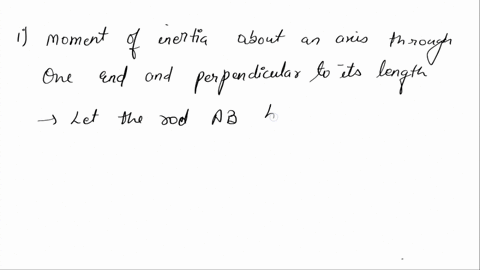 1) Moment of inertia about an axis through
One end and perpendicular to its length
→ Let the rod AB